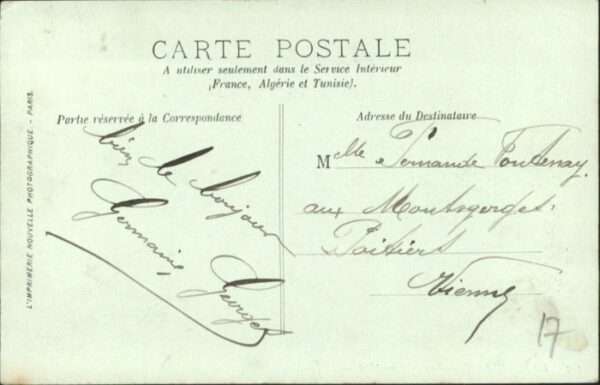 CARTE POSTALE
A utiliser seulement dans le Service Intérieur
(France, Algérie et Tunisie).
Partie réservée à la Correspondance
Adresse du Destinataire
bien de bonjour
Germaine
Georges
Melle Fernande Fontenay
aux Montsgorges
Poitiers
Vienne
17
L'IMPRIMERIE NOUVELLE PHOTOGRAPHIQUE - PARIS.